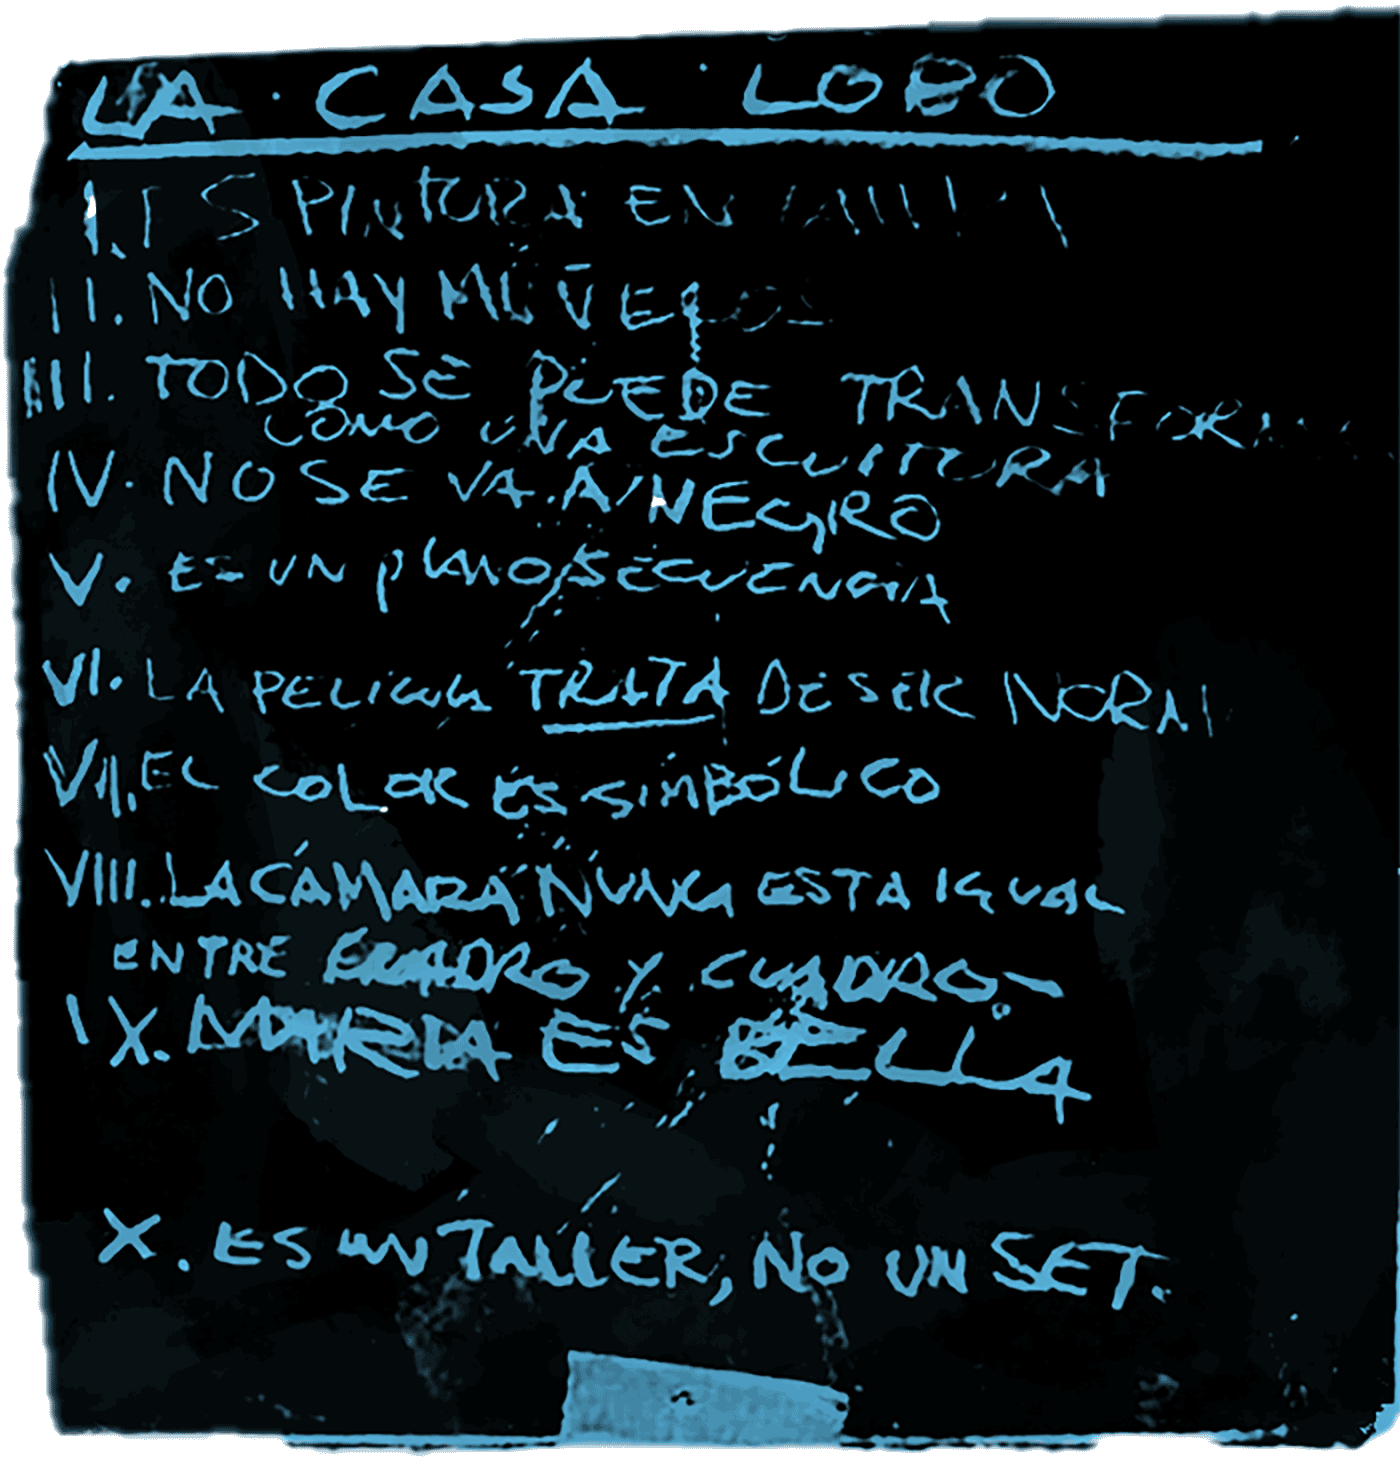 LA CASA LOBO
I. ES PINTURA EN
II. NO HAY MUÑECOS
III. TODO SE PUEDE TRANSFORMAR
COMO UNA ESCULTURA
IV. NO SE VA A NEGRO
V. ES UN PLANO SECUENCIA
VI. LA PELICULA TRATA DE SER NORMAL
VII. EL COLOR ES SIMBÓLICO
VIII. LA CÁMARA NUNCA ESTA IGUAL
ENTRE CUADRO Y CUADRO.
IX. MARIA ES BELLA
X. ES UN TALLER, NO UN SET.